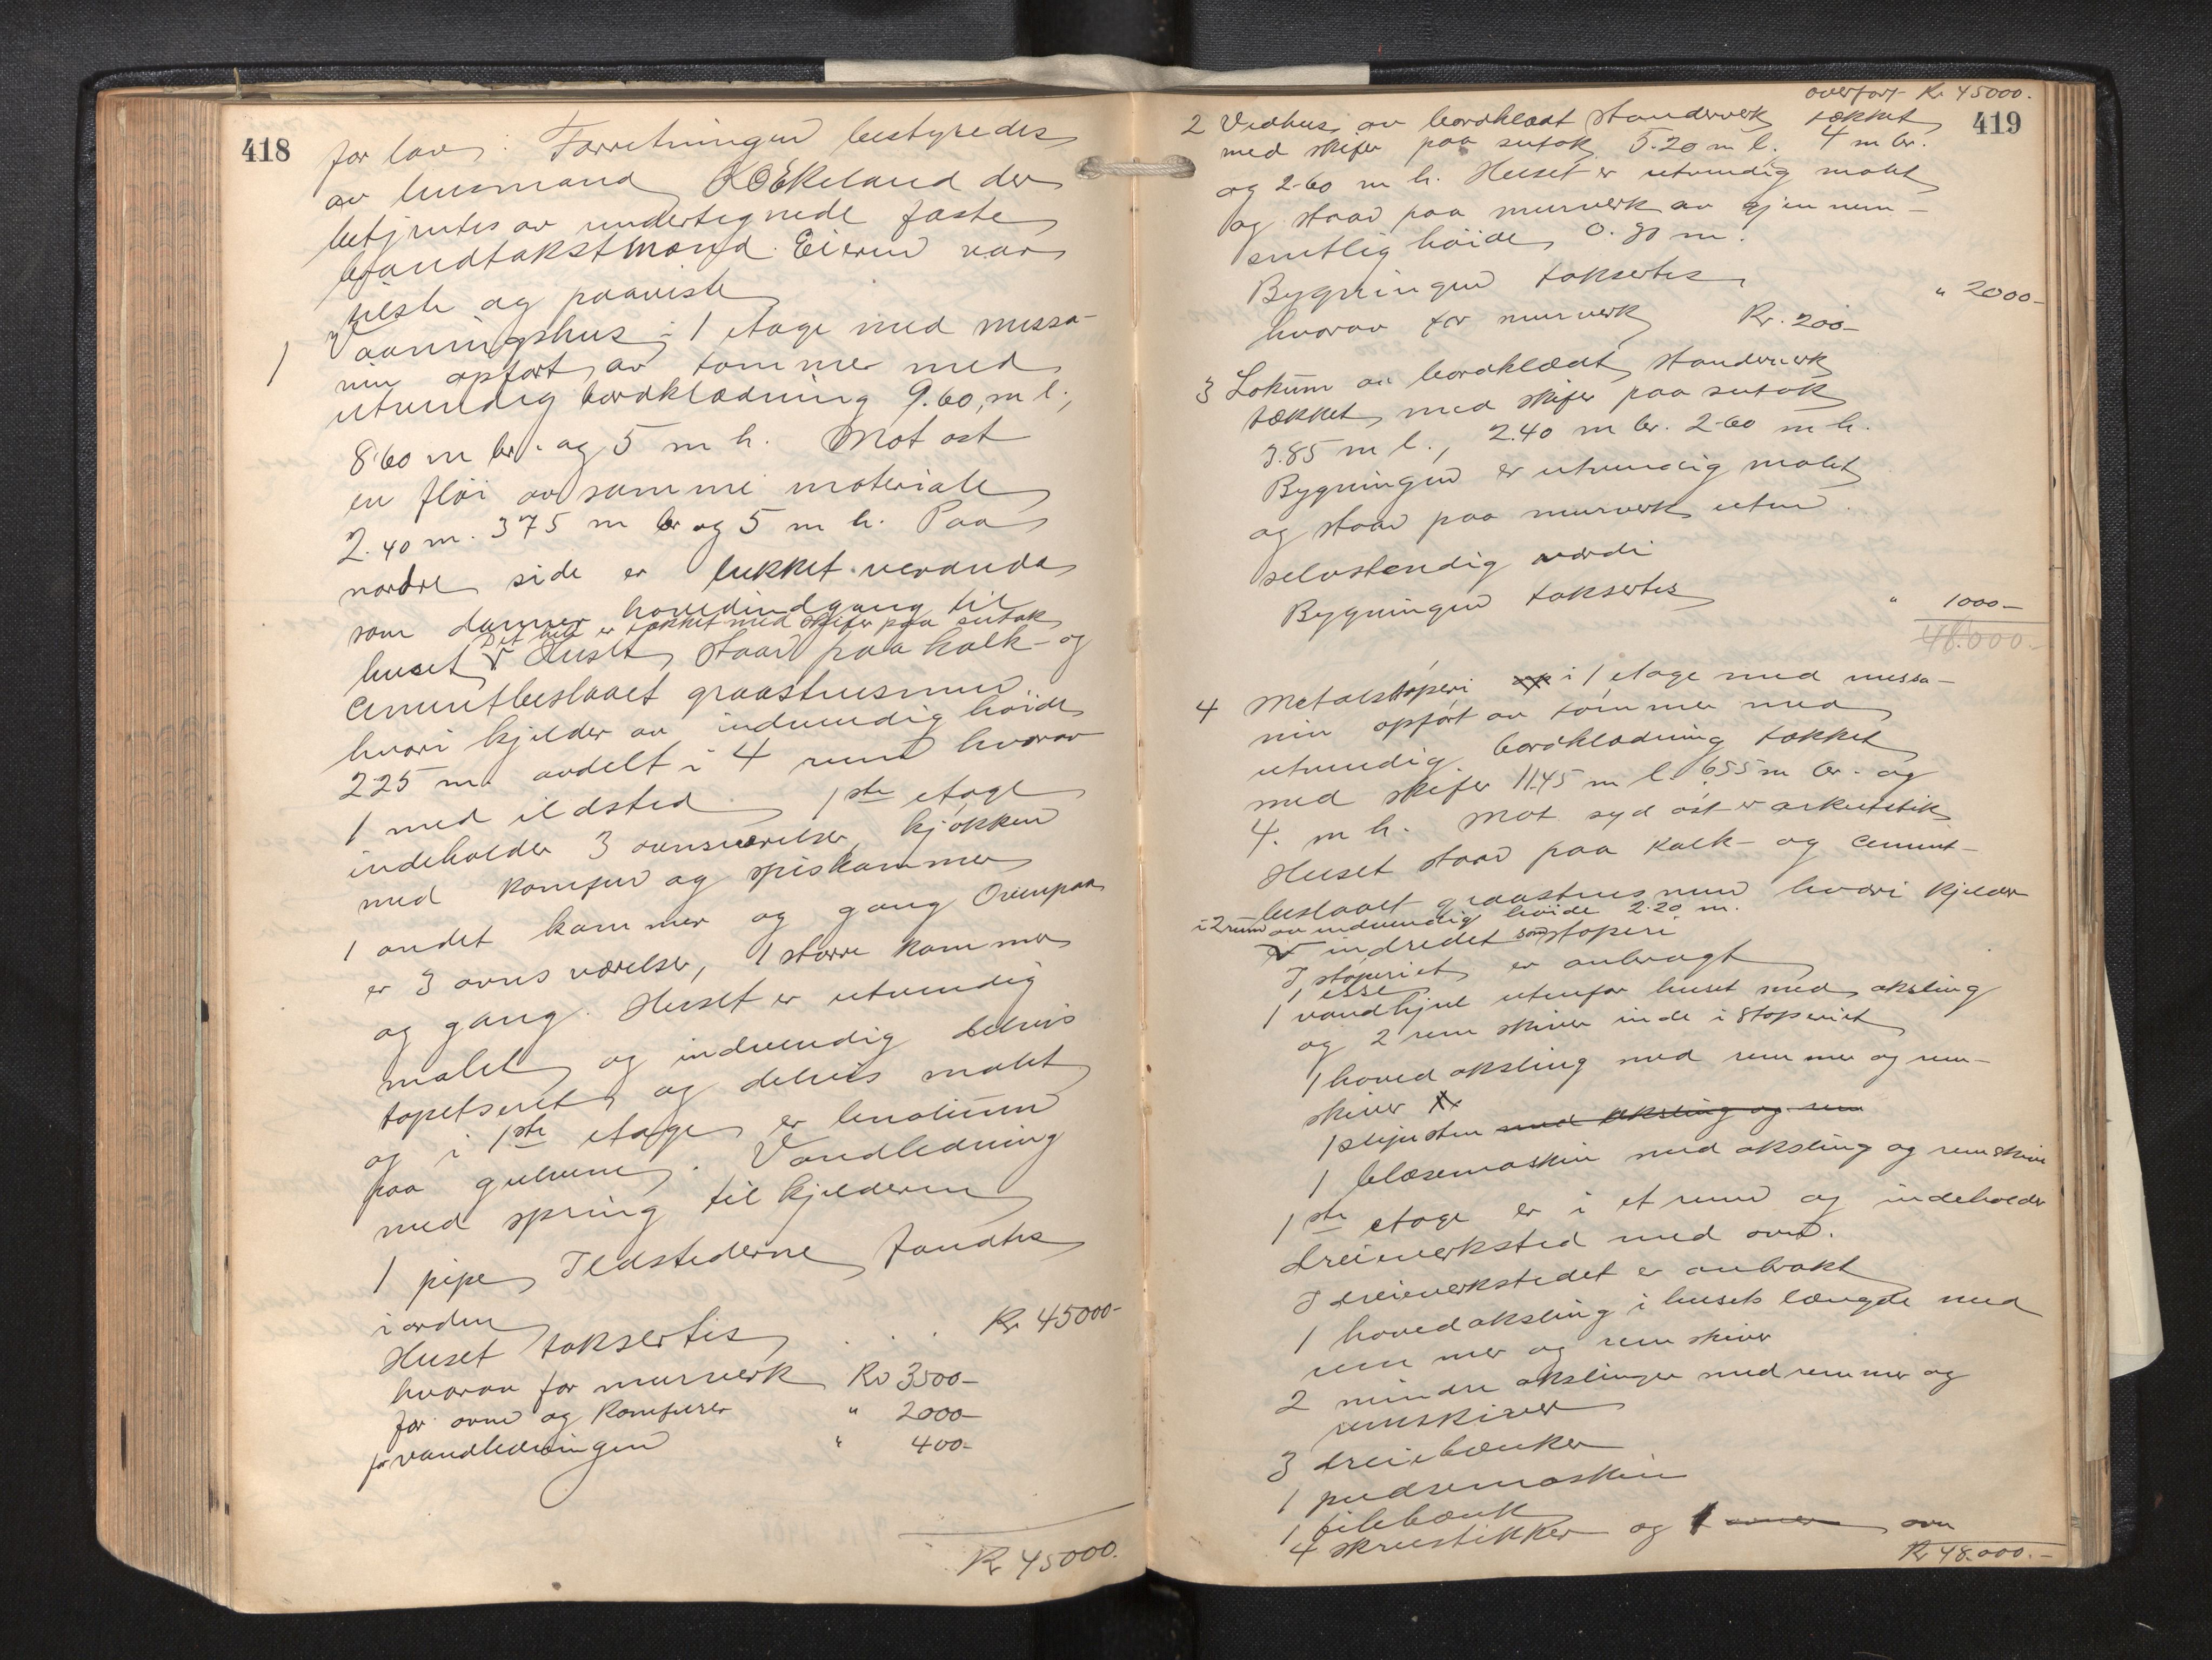 418
for lav. Forretningen bestyredes
av husmand O Ekeland der
betjentes av undertegnede faste
brandtakstmænd. Eieren var
tilste og paaviste
1 Vaaningshus i 1 etage med messa-
nin opført av tømmer med
utvendig bordklædning 9.60 m l.,
8.60 m br. og 5 m h. Mot øst
en fløi av samme materiale
2.40 m. 375 m br og 5 m h. Paa
nordre side er lukket veranda
som danner hovedindgang til
Det hele er tækket med skifer paa sutak
huset V Huset staar paa kalk- og
cementbeslaaet graastensmur
hvori kjelder av indvendig høide
225 m. avdelt i 4 rum hvorav
1 med ildsted 1ste etage
indeholder 3 ovnsværelser, kjøkken
med komfur og spiskammer
1 andet kammer og gang Ovenpaa
er 3 ovnsværelser, 1 større kammer
og gang. Huset er utvendig
malet og indvendig delvis
tapetseret og delvis malet
og i 1ste etage er linolium
paa gulvene. Vandledning
med spring til kjelderen
1 pipe Ildstederne fandtes
i orden
Huset taksertes . . . Kr 45000-
hvorav for murverk Kr 3500-
for ovne og komfurer " 2000-
for vandledningen " 400-
Kr 45000.
overført Kr 45000.
419
2 Vedhus av bordklædt standerverk tækket
med skifer paa sutak 5.20 m l. 4 m br.
og 2.60 m h. Huset er utvendig malet
og staar paa murverk av gjennem-
snitlig høide 0.80 m.
Bygningen taksertes " 2000-
hvorav for murverk Kr. 200-
3 Lokum av bordklædt standerverk
tækket med skifer paa sutak
3.85 m l., 2.40 m br. 2.60 m h.
Bygningen er utvendig malet
og staar paa murverk uten
selvstendig værdi
Bygningen taksertes " 1000-
48.000.-
4 Metalstøperi i 1 etage med messa-
nin opført av tømmer med
utvendig bordklædning tækket
med skifer 11.45 m l. 6.55 m br. og
4. m h. Mot syd øst er arkutstik
Huset staar paa kalk- og cement-
beslaaet graastensmur hvori kjelder
i 2 rum av indvendig høide 2.20 m.
V indredet som støperi
I støperiet er anbragt
1 esse
1 vandhjul utenfor huset med aksling
og 2 remskiver inde i støperiet
1 hovedaksling med remmer og rem-
skiver
1 slipesten med aksling og rem
1 blæsemaskin med aksling og remskive
1ste etage er i et rum og indeholder
dreieverksted med ovn.
I dreieverkstedet er anbrakt
1 hovedaksling i husets længde med
remmer og remskiver
2 mindre akslinger med remmer og
remskiver
3 dreiebænker
1 pudsemaskin
1 filebænk
4 skruestikker og 1 ovn
Kr 48.000.-